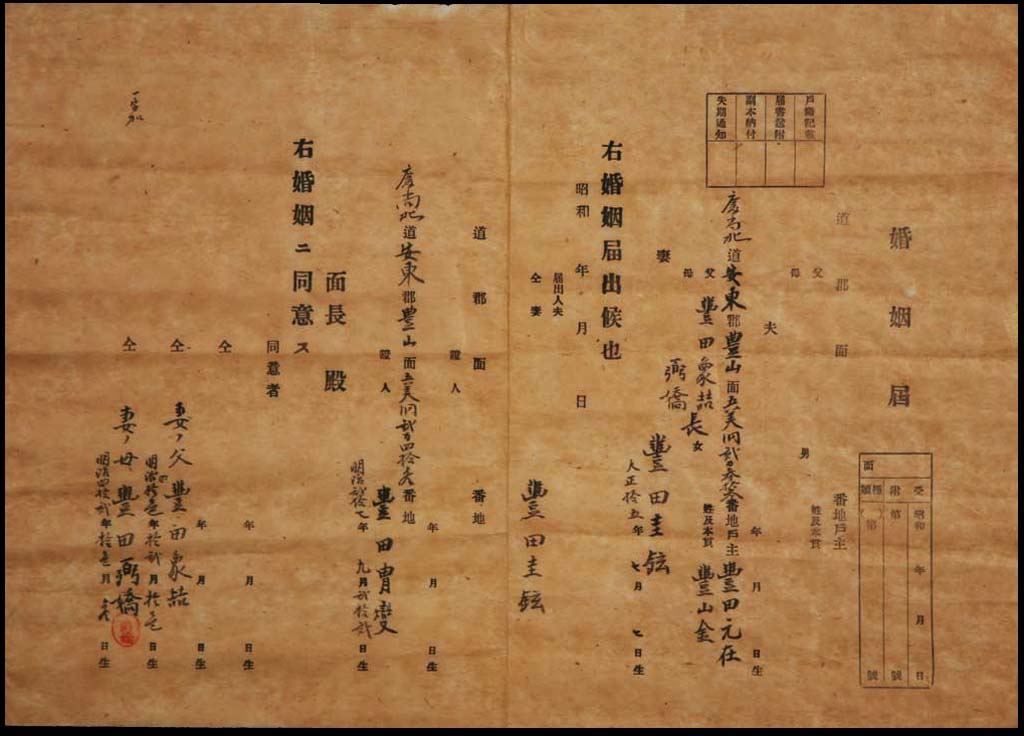 婚姻屆
受 昭和 年 月 日
附 第 號
種類 (第 ) 號
面
道 郡 面 番地戶主
父
母
男 姓及本貫
夫
年 月 日生
戶籍記載
屆書送附
副本納付
失期通知
慶尚北道安東郡豊山面五美洞 番地戶主豊田元在
父 豊田象喆
母 弼僑
長女 姓及本貫 豊山金
妻 豊田圭鉉
大正拾五年七月七日生
右婚姻屆出候也
昭和 年 月 日
屆出人夫
仝 妻 豊田圭鉉
道 郡 面 番地
證人
年 月 日生
慶尚北道安東郡豊山面五美洞 番地
證人 豊田胄燮
明治貳拾七年九月貳拾貳日生
面長 殿
右婚姻ニ同意ス
同意者
年 月 日生
仝
年 月 日生
仝 妻ノ父 豊田象喆
年拾貳月拾壱日生
仝 妻ノ母 豊田弼僑
明治四拾貳年拾壱月 日生